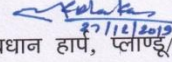 27/12/2019
धान हार्प, प्लाण्डू